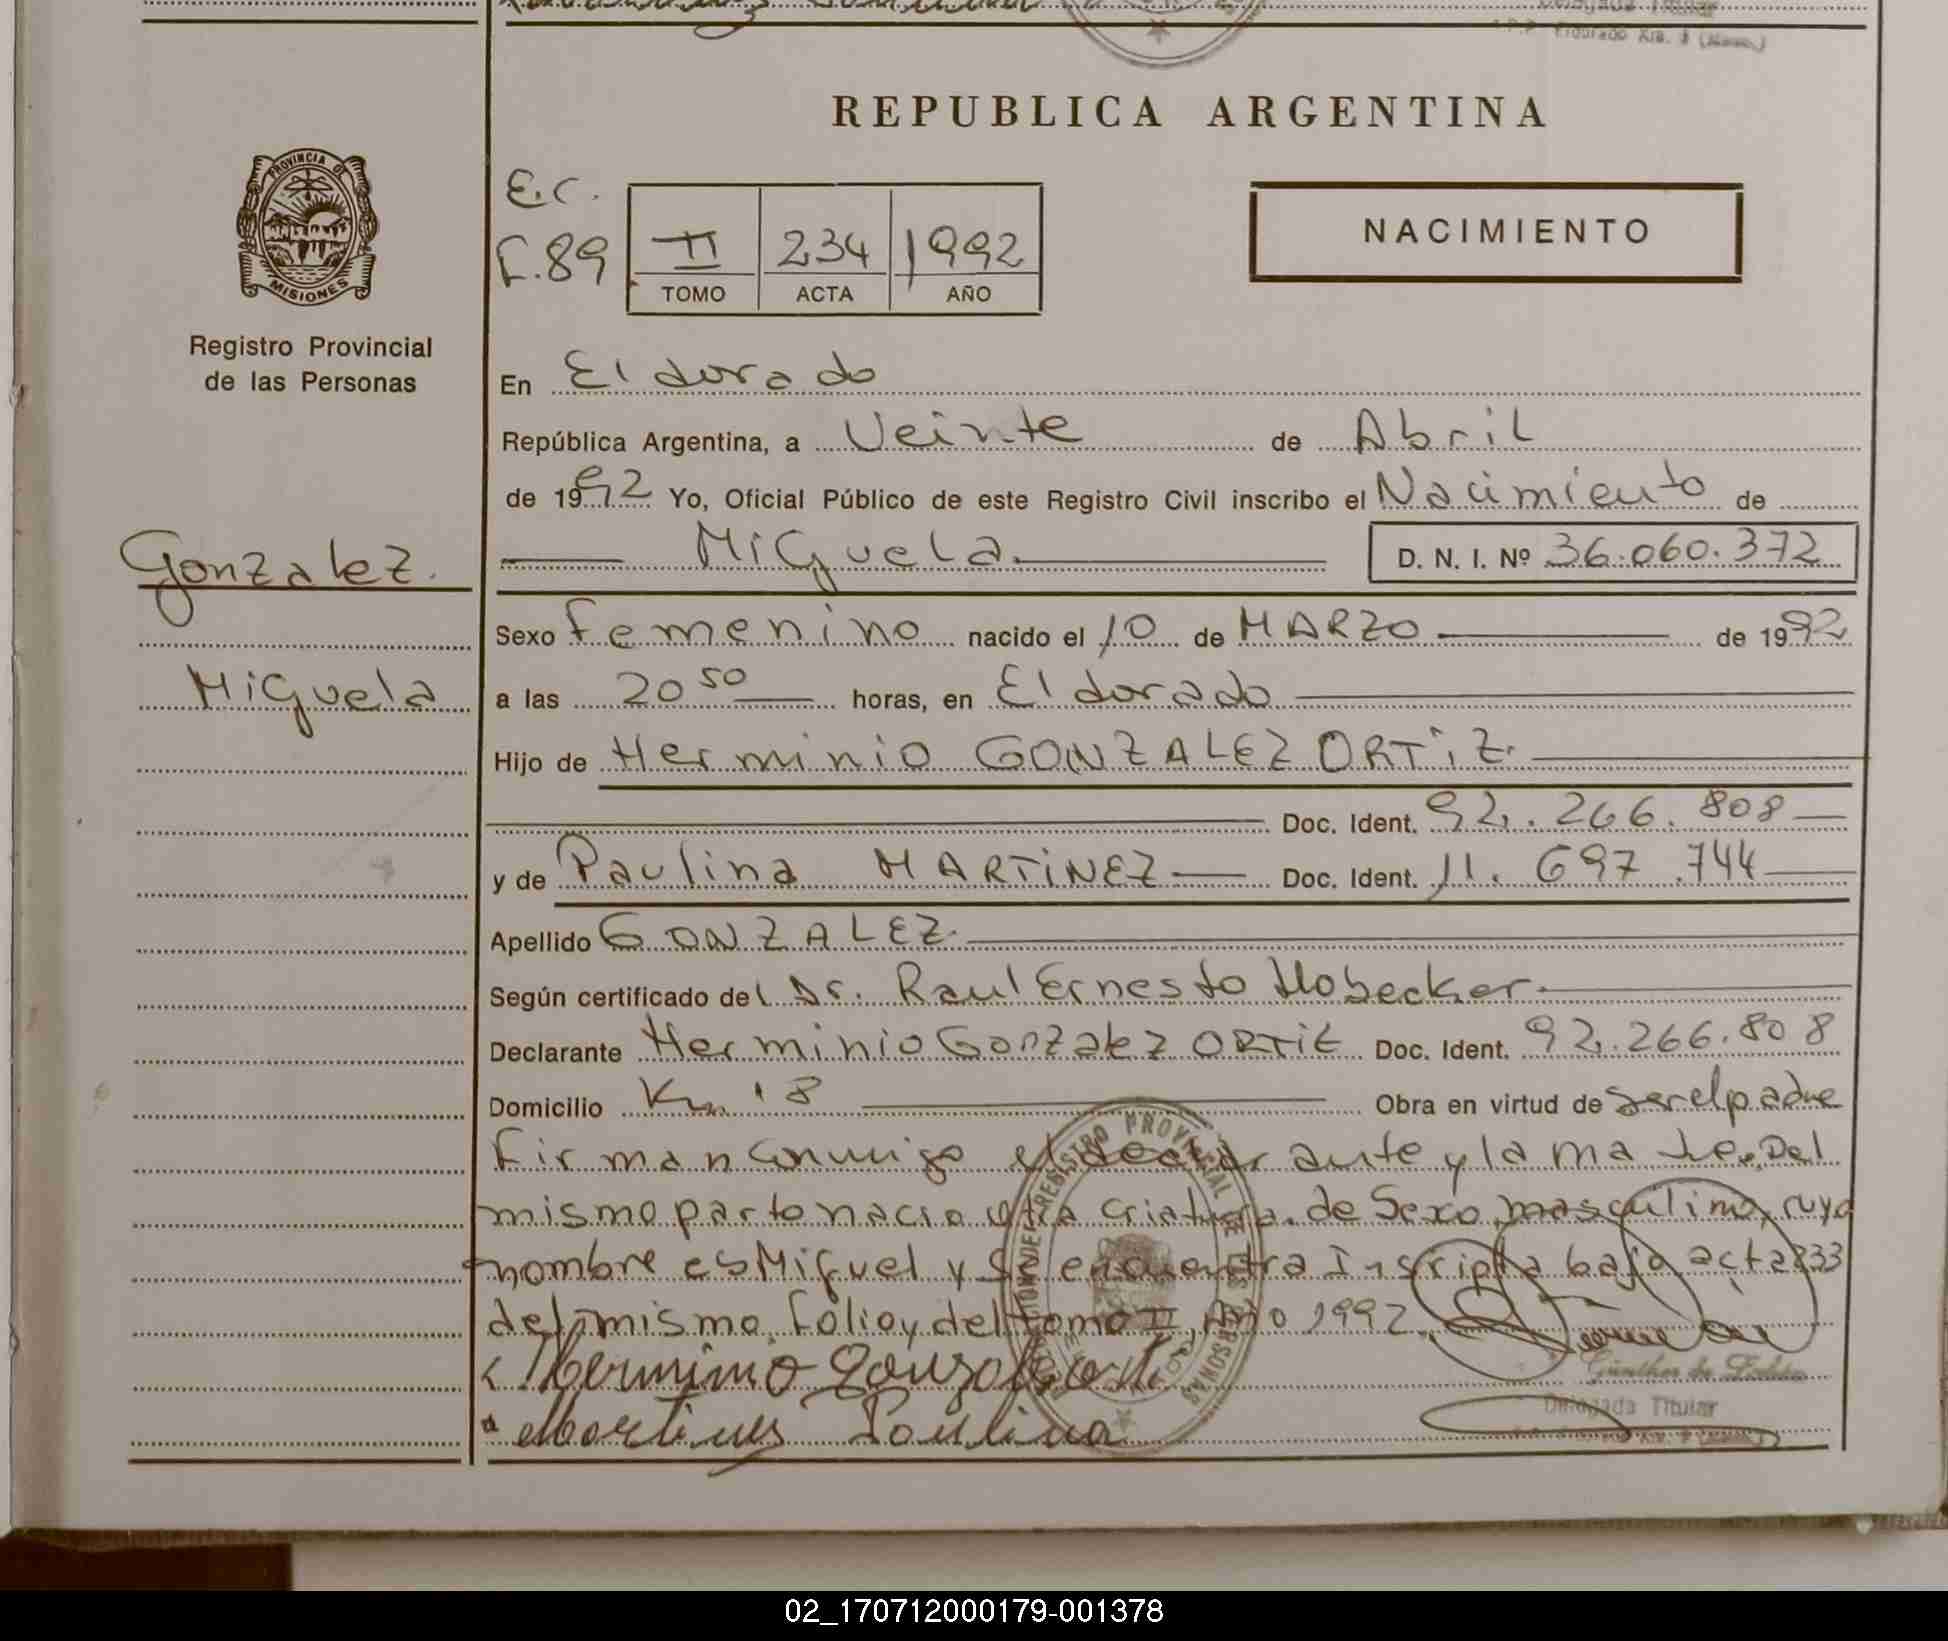 REPUBLICA ARGENTINA
PROVINCIA DE
MISIONES
Registro Provincial
de las Personas
Gonzalez.
Miguela
E.C.
F.89
II 234 1992
TOMO ACTA AÑO
NACIMIENTO
En Eldorado
República Argentina, a Veinte de Abril
de 1992 Yo, Oficial Público de este Registro Civil inscribo el Nacimiento de
Miguela. D. N. I. Nº 36.060.372
Sexo Femenino nacido el 10 de MARZO de 1992
a las 20 50 horas, en Eldorado
Hijo de Herminio GONZALEZ ORTIZ.
Doc. Ident. 92.266.808
y de Paulina MARTINEZ Doc. Ident. 11.697.744
Apellido GONZALEZ.
Según certificado del Dr. Raul Ernesto Hobecker.
Declarante Herminio Gonzalez ORTIZ Doc. Ident. 92.266.808
Domicilio Km. 18 Obra en virtud de ser el padre
Firman conmigo el declarante y la madre. Del
mismo parto nacio otra criatura de Sexo masculino, cuyo
nombre es Miguel y se encuentra Inscripta bajo acta 233
del mismo folio y del tomo II, Año 1992.
Herminio Gonzalez Ort
Martines Paulina
Delegada Titular
REGISTRO PROVINCIAL DE LAS PERSONAS
02_170712000179-001378